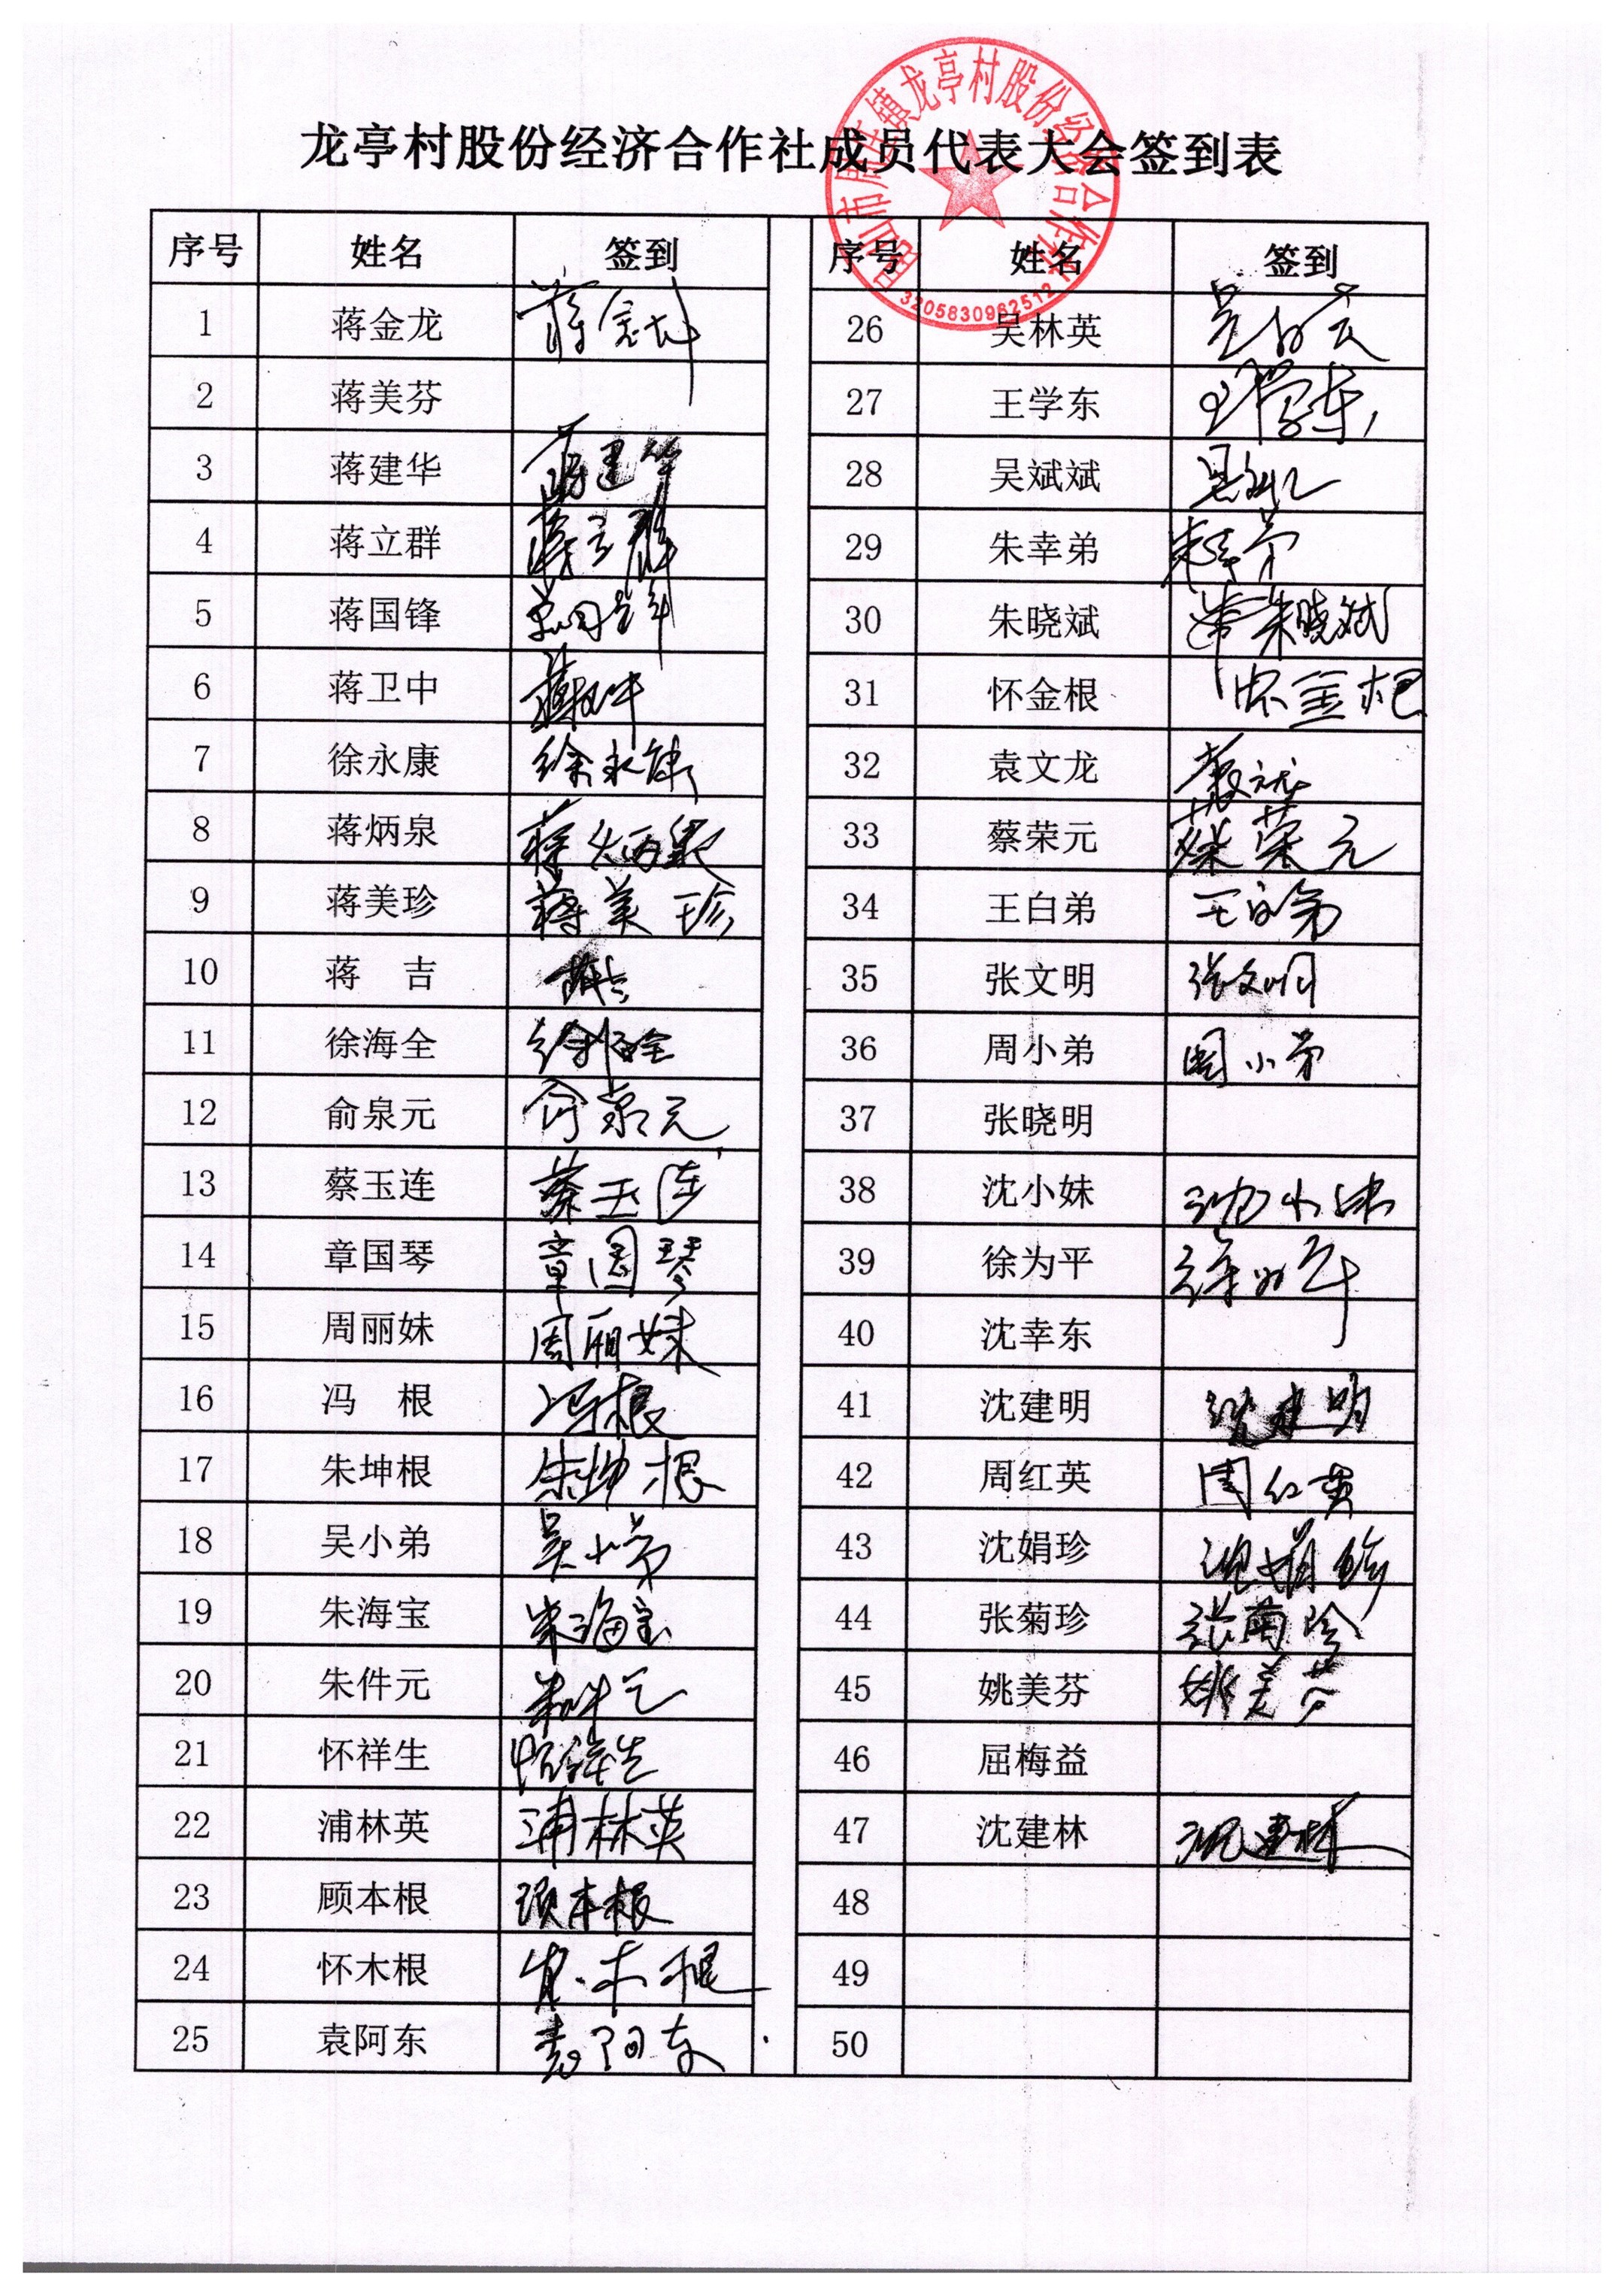 龙亭村股份经济合作社成员代表大会签到表
昆山市周庄镇龙亭村股份经济合作社
3205830962512
序号 姓名 签到 序号 姓名 签到
1 蒋金龙 蒋金龙 26 吴林英
2 蒋美芬 27 王学东 王学东
3 蒋建华 蒋建华 28 吴斌斌
4 蒋立群 蒋立群 29 朱幸弟 朱幸弟
5 蒋国锋 30 朱晓斌 朱晓斌
6 蒋卫中 蒋卫中 31 怀金根 怀金根
7 徐永康 徐永康 32 袁文龙 袁文龙
8 蒋炳泉 蒋炳泉 33 蔡荣元 蔡荣元
9 蒋美珍 蒋美珍 34 王白弟 王白弟
10 蒋 吉 蒋吉 35 张文明 张文明
11 徐海全 徐海全 36 周小弟 周小弟
12 俞泉元 俞泉元 37 张晓明
13 蔡玉连 蔡玉连 38 沈小妹 沈小妹
14 章国琴 章国琴 39 徐为平 徐为平
15 周丽妹 周丽妹 40 沈幸东
16 冯 根 冯根 41 沈建明 沈建明
17 朱坤根 朱坤根 42 周红英 周红英
18 吴小弟 吴小弟 43 沈娟珍 沈娟珍
19 朱海宝 朱海宝 44 张菊珍 张菊珍
20 朱件元 朱件元 45 姚美芬 姚美芬
21 怀祥生 怀祥生 46 屈梅益
22 浦林英 浦林英 47 沈建林 沈建林
23 顾本根 顾本根 48
24 怀木根 怀木根 49
25 袁阿东 袁阿东 50